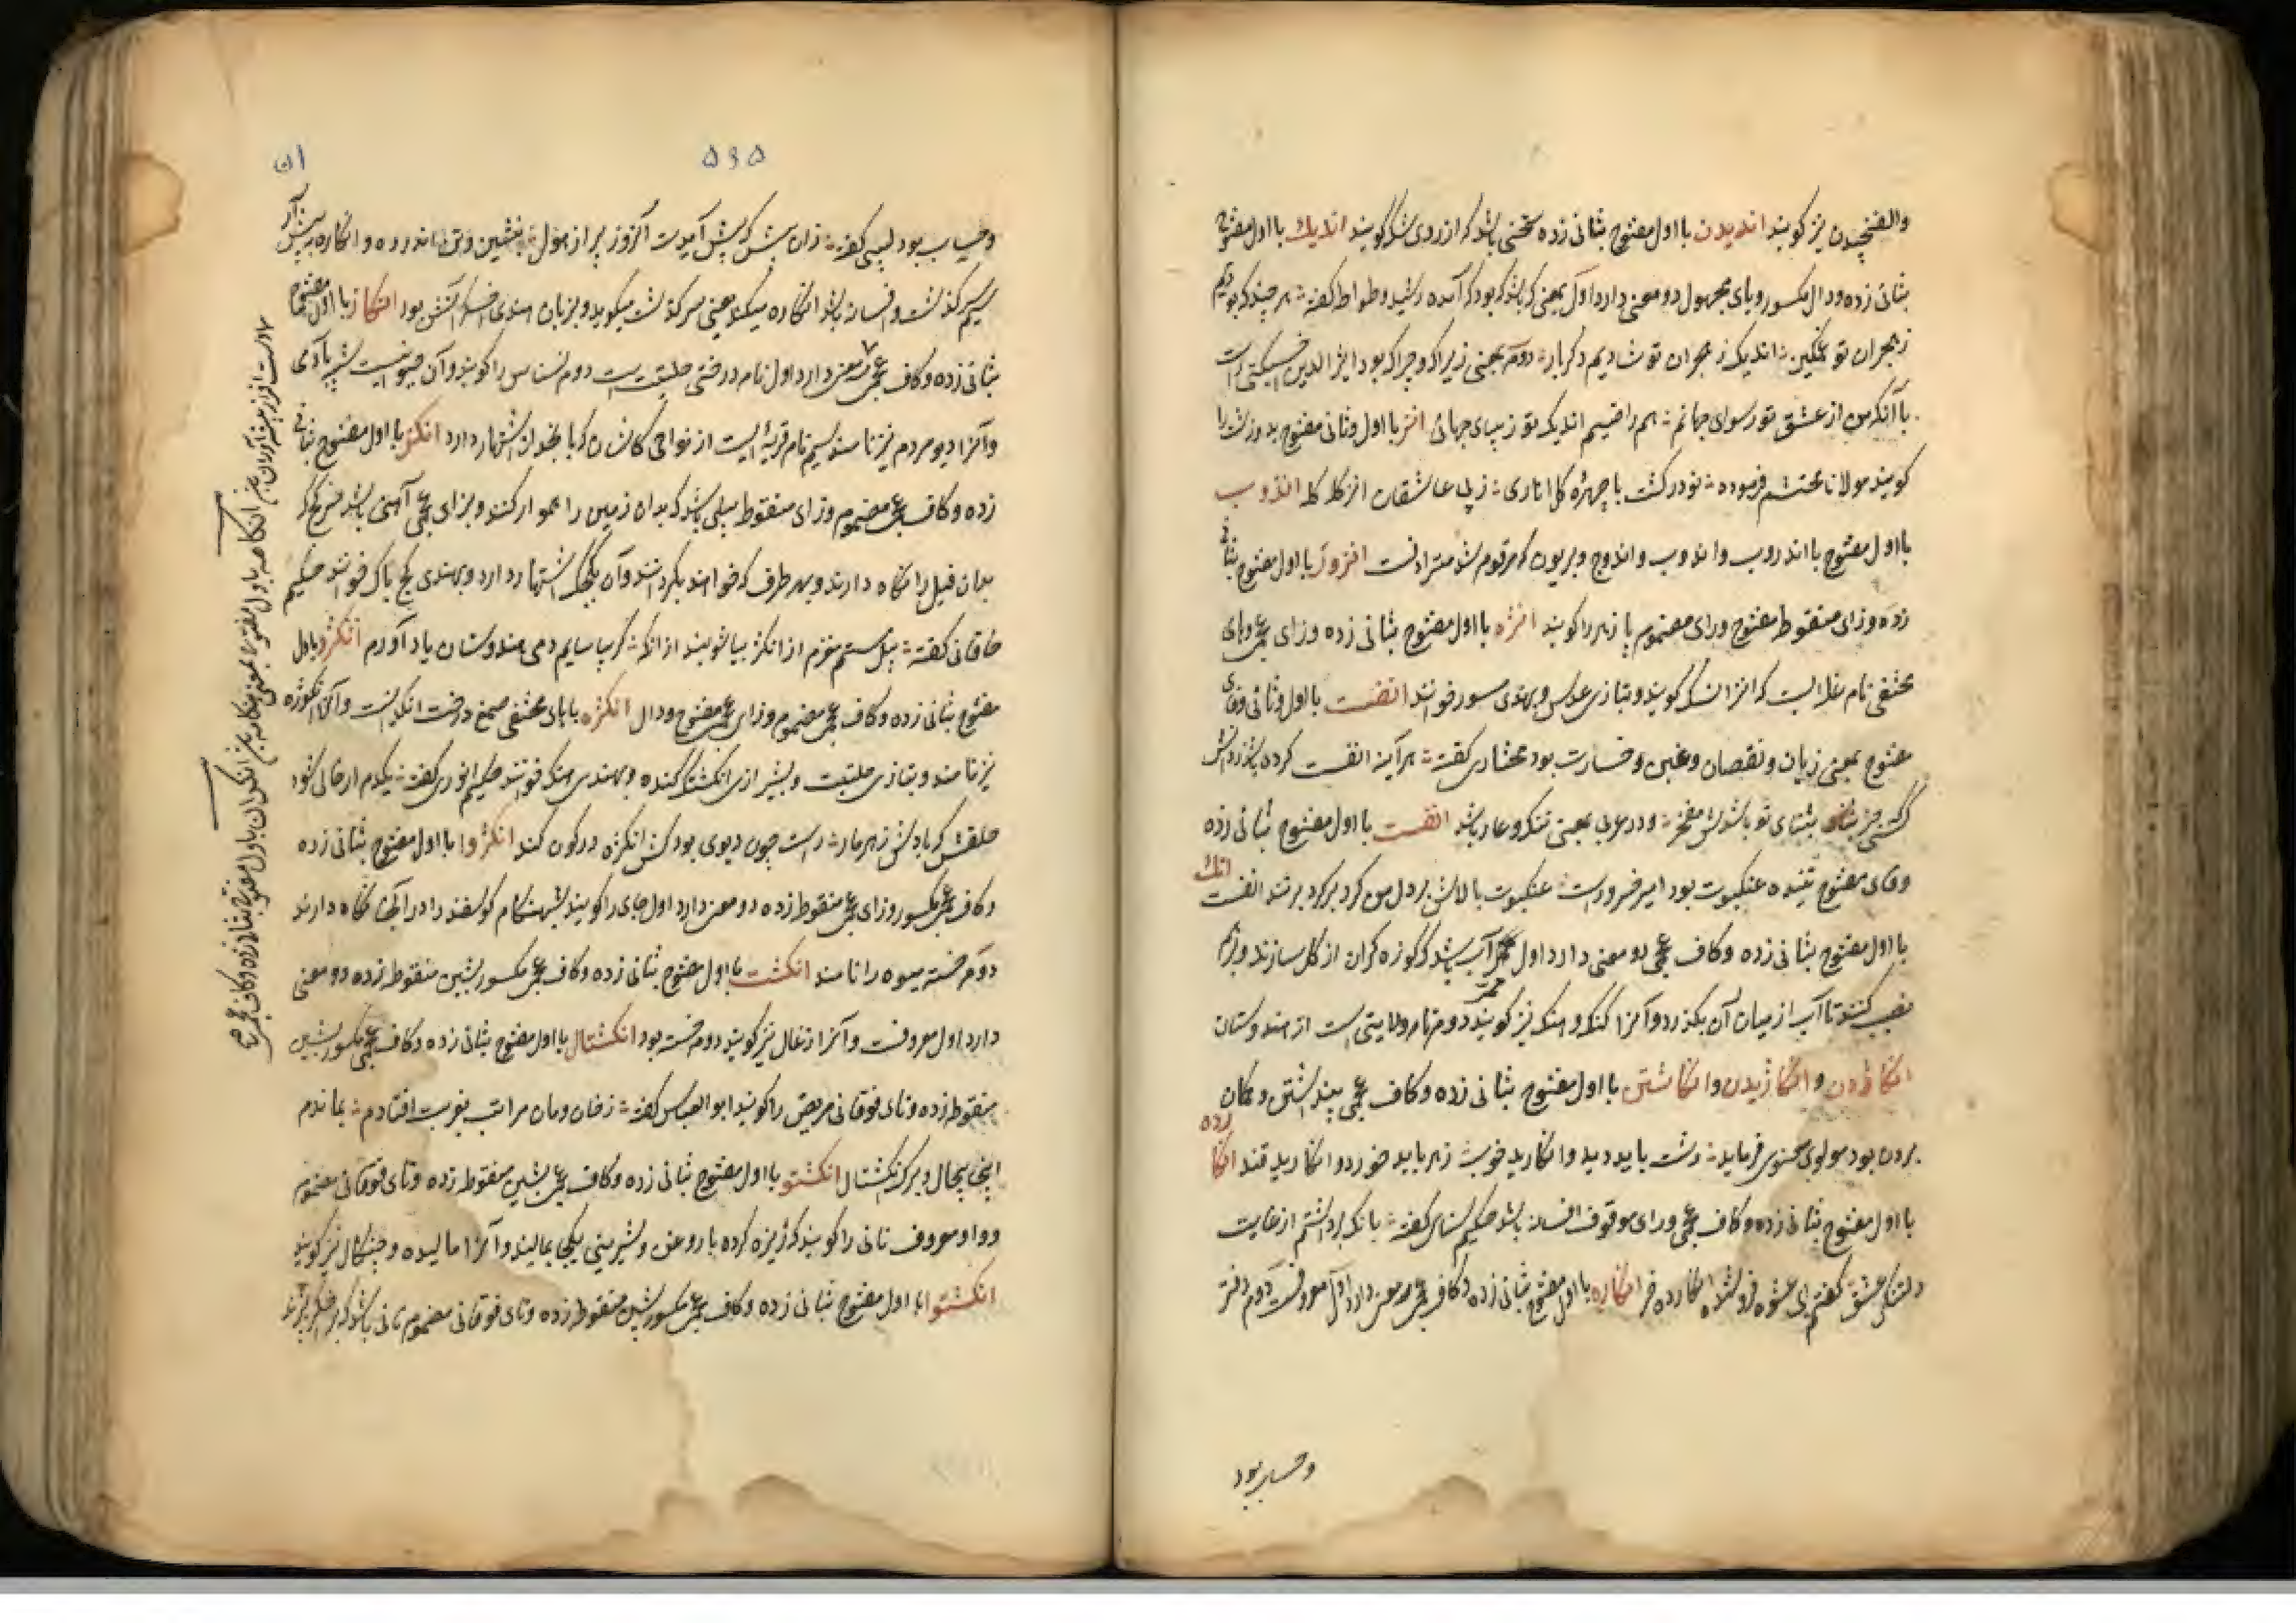 والفنجیدن نیز گویند اندیدن با اول مفتوح بثانی زده سخنی باشد که از روی شک گویند اندیک با اول مفتوح
بثانی زده و دال مکسور و یای مجهول دو معنی دارد اول بمعنی که باشد که بود که آمده رشید وطواط گفته هر چند که بودیم
ز هجران تو غمگین اندیک ز هجران تو شادیم دگربار دوم بمعنی زیراکه و چراکه بود اثیرالدین اخسیکتی راست
با آنکه من از عشق تو رسوای جهانم هم راضیم اندیک تو زیبای جهانی انر با اول و ثانی مفتوح بد و زشت را
گویند مولانا محتشم فرموده تو در گشت با چهره گلناری ز پی عاشقان انر گله گله اندوب
با اول مفتوح با اندروب و اندوب و اندوج و بریون که مرقوم شد مترادفست انزروت با اول مفتوح بثانی
زده و زای منقوطه مفتوح و رای مضموم پازهر را گویند انژه با اول مفتوح بثانی زده و زای عجمی و های
مختفی نام غله ایست که آنرا نسک گویند و بتازی عدس و بهندی مسور خوانند انفست با اول و ثانی و فای
مفتوح بمعنی زیان و نقصان و غبن و خسارت بود مختاری گفته هر آینه انفست کرده باشد زدانش
کسی جز بثنای تو باشدش مفخر و در عربی بمعنی ننگ و عار باشد انفست با اول مفتوح بثانی زده
و فای مفتوح تنیده عنکبوت بود امیر خسرو راست عنکبوت بلاش بر دل من گرد بر گرد بر تند انفست انگ
با اول مفتوح بثانی زده و کاف عجمی دو معنی دارد اول ممر آب باشد که کوزه گران از گل سازند و بر هم
نصب کنند تا آب از میان آن بگذرد و آنرا گنگ و هنگ نیز گویند دوم نام ولایتی است از هندوستان
انگاردن و انگاریدن و انگاشتن با اول مفتوح بثانی زده و کاف عجمی پنداشتن و گمان
بردن بود مولوی معنوی فرماید زشت باید دید و انگارید خوب زهر باید خورد و انگارید قند انگارده
با اول مفتوح بثانی زده و کاف عجمی و رای موقوف افسانه باشد حکیم سنائی گفته بانگ برداشتم از غایت
دلتنگی عشق گفتم ای عشوه فروشنده انگارده خر انگاره با اول مفتوح بثانی زده و کاف عجمی سه معنی دارد اول معروفست دوم دفتر
و حساب بود
۵۶۵
ان
و حساب بود لبیبی گفته زان پیش که پیش آیدت آنروز پر از هول بنشین و تن اندر ده و انگاره به پیش آر
سیم سرگذشت و افسانه باشد انگاره میکند یعنی سرگذشت میگوید و بزبان هندی اخگر آتش بود انگاز با اول مفتوح
بثانی زده و کاف عجمی سه معنی دارد اول نام درختی حلتیت است دوم نسناس را گویند و آن حیوانیست شبیه بآدمی
و آنرا دیو مردم نیز نامند سیم نام قریه ایست از نواحی کاشان که اشتهار دارد انگز با اول مفتوح بثانی
زده و کاف عجمی مضموم و زای منقوطه بیلی باشد که بدان زمین را هموار کنند و بزای عجمی آهنی باشد سر کج که
بدان فیل را نگاه دارند و بهر طرف که خواهند بگردانند و آن بکجک اشتهار دارد و بهندی کج باک خوانند حکیم
خاقانی گفته پیل مستم مغزم از انگژ بیاشوبید از آنک گر بیاسایم دمی هندوستان یاد آورم انگژد با اول
مفتوح بثانی زده و کاف عجمی مضموم و زای عجمی مفتوح و دال انگژه با های مختفی صمغ درخت انگدانست و آنرا انگوزه
نیز نامند و بتازی حلتیت و بشیرازی انگشت گنده و بهندی هینگ خوانند حکیم انوری گفته یکدم ار خالی شود
حلقش گر بادش زهر مار راست چون دیوی بود کش انگژه در کون کنند انگژوا با اول مفتوح بثانی زده
و کاف عجمی مکسور و زای عجمی منقوطه زده دو معنی دارد اول جای را گویند که شب هنگام گوسفند را در آنجا نگاه دارند
دوم خسته میوه را نامند انگشت با اول مفتوح بثانی زده و کاف عجمی مکسور بشین منقوطه زده دو معنی
دارد اول معروفست و آنرا زغال نیز گویند دوم خسته بود انگشتال با اول مفتوح بثانی زده و کاف عجمی مکسور بشین
منقوطه زده و تای فوقانی مریض را گویند ابوالعباس گفته ز خان و مان مراتب بغربت افتادم بماندم
اینجا بیچال و برگ انگشتال انگشتو با اول مفتوح بثانی زده و کاف عجمی بشین منقوطه زده و تای فوقانی مضموم
و واو معروف نانی را گویند که ریزه کرده با روغن و شیرینی یکجا بمالند و آنرا مالیده و چنگال نیز گویند
انگشتوا با اول مفتوح بثانی زده و کاف عجمی مکسور بشین منقوطه زده و تای فوقانی مضموم نانی باشد که بر اخگر پزند